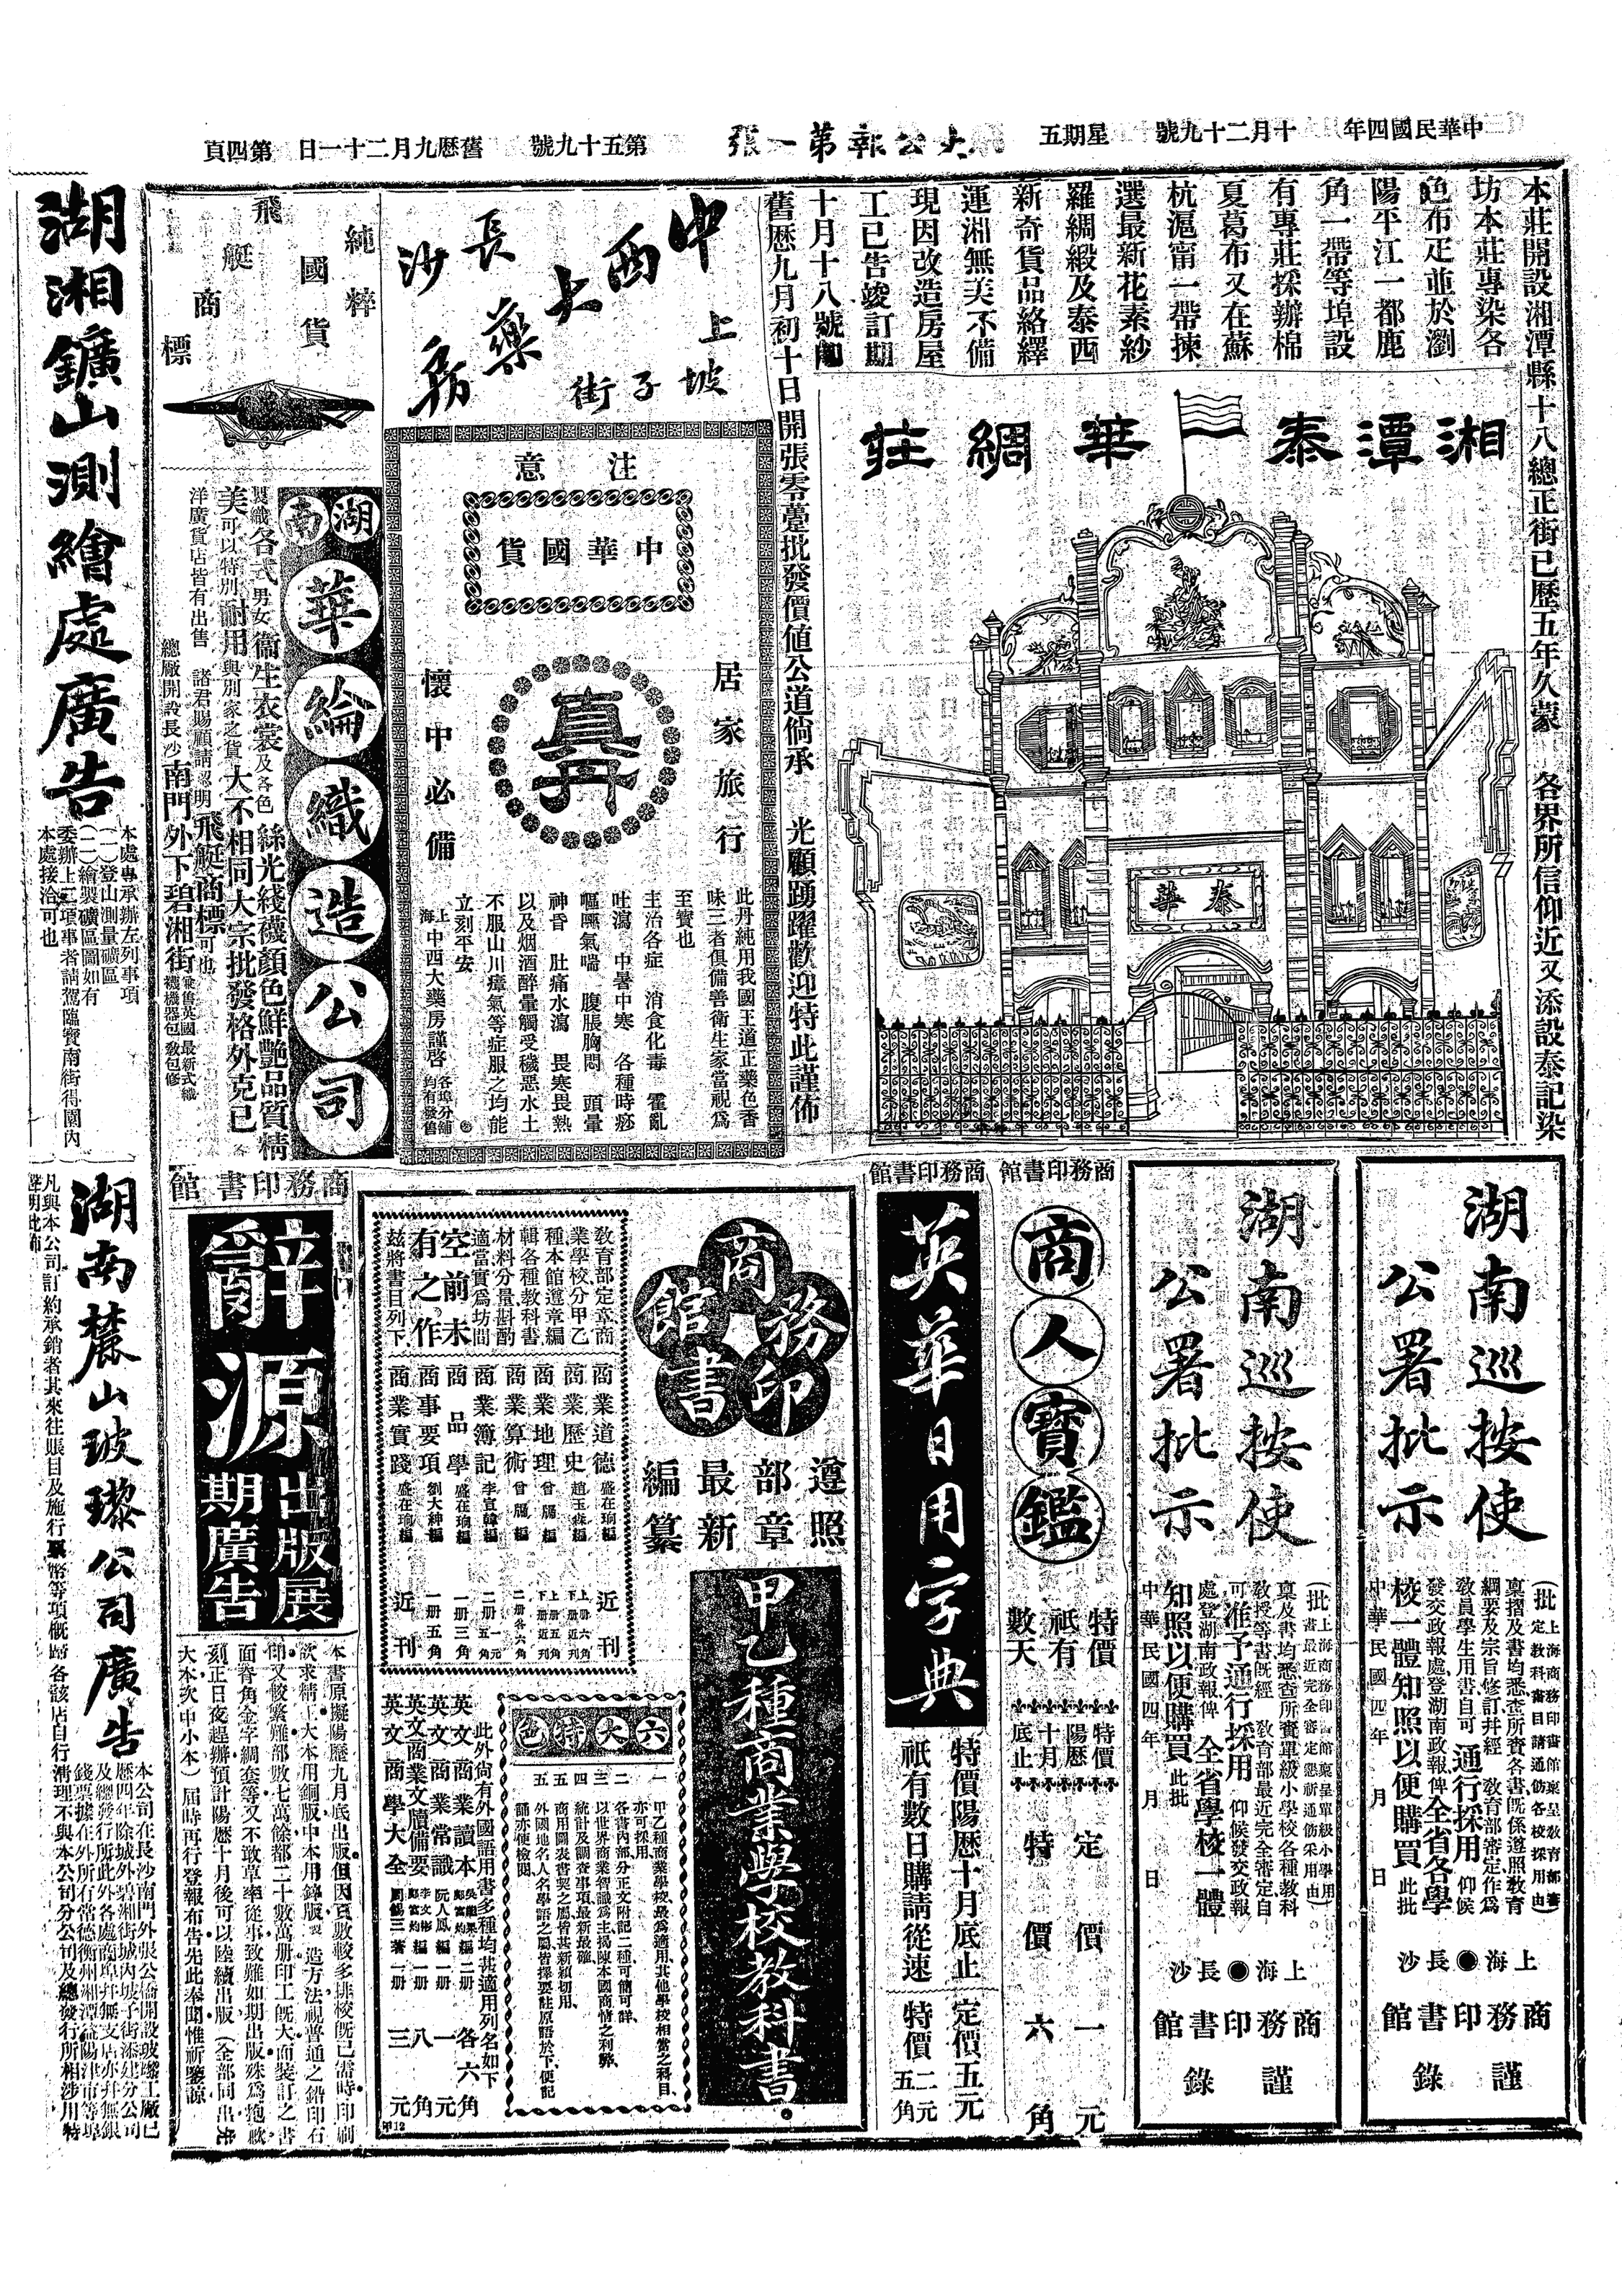 中華民國四年
十月二十九號
星期五
大公報第一張
第五十九號
舊歷九月二十一日
第四頁
本莊開設湘潭縣十八總正街已歷五年久蒙　各界所信仰近又添設泰記染
坊本莊專染各
色布疋並於瀏
陽平江一都鹿
角一帶等埠設
有專莊採辦棉
夏葛布又在蘇
杭滬甯一帶揀
選最新花素紗
羅綢緞及泰西
新奇貨品絡繹
運湘無美不備
現因改造房屋
工已告竣訂期
十月十八號即
舊歷九月初十日開張零躉批發價値公道倘承　光顧踴躍歡迎特此謹佈
湘潭泰華綢莊
泰華
中西大藥房
長沙
上坡子街
注意
中華國貨
眞丹
居家旅行
懷中必備
此丹純用我國王道正藥色香
味三者俱備善衛生家當視爲
至寶也
主治各症　消食化毒　霍亂
吐瀉　中暑中寒　各種時痧
嘔噁氣喘　腹脹胸悶　頭暈
神昏　肚痛水瀉　畏寒畏熱
以及烟酒醉暈觸受穢惡水土
不服山川瘴氣等症服之均能
立刻平安
上海中西大藥房謹啓
各埠分鋪均有發售
純粹
國貨
飛艇商標
湖南華綸織造公司
製織各式男女衞生衣裳及各色絲光綫襪顏色鮮艷品質精
美可以特別耐用與別家之貨大不相同大宗批發格外克己
洋廣貨店皆有出售　諸君賜顧請認明飛艇商標可也
總廠開設長沙南門外下碧湘街
兼售英國最新式織
襪機器包教包修
湖湘鑛山測繪處廣告
本處專承辦左列事項
（一）登山測量礦區
（二）繪製礦區圖如有
委辦上二項事者請駕臨寶南街得園內
本處接洽可也
湖南巡按使
公署批示
（批上海商務印書館稟呈敎育部審定敎科書目請通飭各校採用由）
稟摺及書均悉查所賫各書旣係遵照敎育
綱要及宗旨修訂幷經　敎育部審定作爲
敎員學生用書自可　通行採用　仰候
發交政報處登湖南政報俾全省各學
校一體知照以便購買　此批
中華民國四年　月　日
上海●長沙
商務印書館
謹錄
湖南巡按使
公署批示
（批上海商務印書館稟呈單級小學用書最近完全審定懇祈通飭采用由）
稟及書均悉查所賫單級小學校各種敎科
敎授等書旣經　敎育部最近完全審定自
可准予通行採用　仰候發交政報
處登湖南政報俾　全省學校一體
知照以便購買　此批
中華民國四年　月　日
上海●長沙
商務印書館
謹錄
商務印書館
商人寶鑑
特價祇有數天
特價陽歷十月底止
定價一元
特價六角
商務印書館
英華日用字典
特價陽歷十月底止
祇有數日購請從速
定價五元
特價二元五角
商務印書館
遵照部章最新編纂
甲乙種商業學校教科書
敎育部定章商
業學校分甲乙
種本館遵章編
輯各種敎科書
材料分量斟酌
適當實爲坊間
空前未
有之作
茲將書目列下
商業道德　盛在珦編　近刊
商業歷史　趙玉森編　上册六角　下册近刊
商業地理　曾牖編　上册五角　下册近刊
商業算術　曾牖編　二册各六角
商業簿記　李宣韓編　二册一元
商品學　盛在珦編　一册三角
商事要項　劉大紳編　一册五角
商業實踐　盛在珦編　近刊
六大特色
一　甲乙種商業學校最爲適用其他學校相當之科目、亦可採用
二　各書內部分正文附記二種、可簡可詳、
三　以世界商業智識爲主、揭陳本國商情之利弊、
四　統計及調查事項、最新最確、
五　商用圖表書契之屬皆甚新穎切用、
外國地名人名學語之屬、皆擇要註原語於下、便記誦亦便檢閱
此外尙有外國語用書多種均甚適用列名如下
英文商業讀本　二册　各六角
英文商業常識　阮人鳳編　一册　一元
英文商業文牘備要　李文彬編　一册　八角
英文商學大全　周錫三著　一册　三元
商務印書館
辭源出版展期廣告
本書原擬陽歷九月底出版但因頁數較多排校旣已需時印刷
欲求精工大本用銅版中本用鋅版　造方法視普通之鉛印石
印又較繁難部數七萬餘都二十數萬册印工旣大而裝訂之書
面脊角金字綢套等又不敢草率從事致難如期出版殊爲抱歉
刻正日夜趕辦預計陽歷十月後可以陸續出版（全部同出先
大本次中小本）屆時再行登報布告先此奉聞惟祈鑒諒
湖南麓山玻璨公司廣告
本公司在長沙南門外張公橋開設玻璨工廠已
歷四年除城外碧湘街城內坡子街添建分公司
及總發行所此外各處商埠幷無支店亦幷無銀
錢票據在外所有常德衡州湘潭益陽津市等埠
凡與本公司訂約承銷者其來往賬目及施行票幣等項槪歸各該店自行淸理不與本公司分公司及總發行所相涉用特
聲明此佈